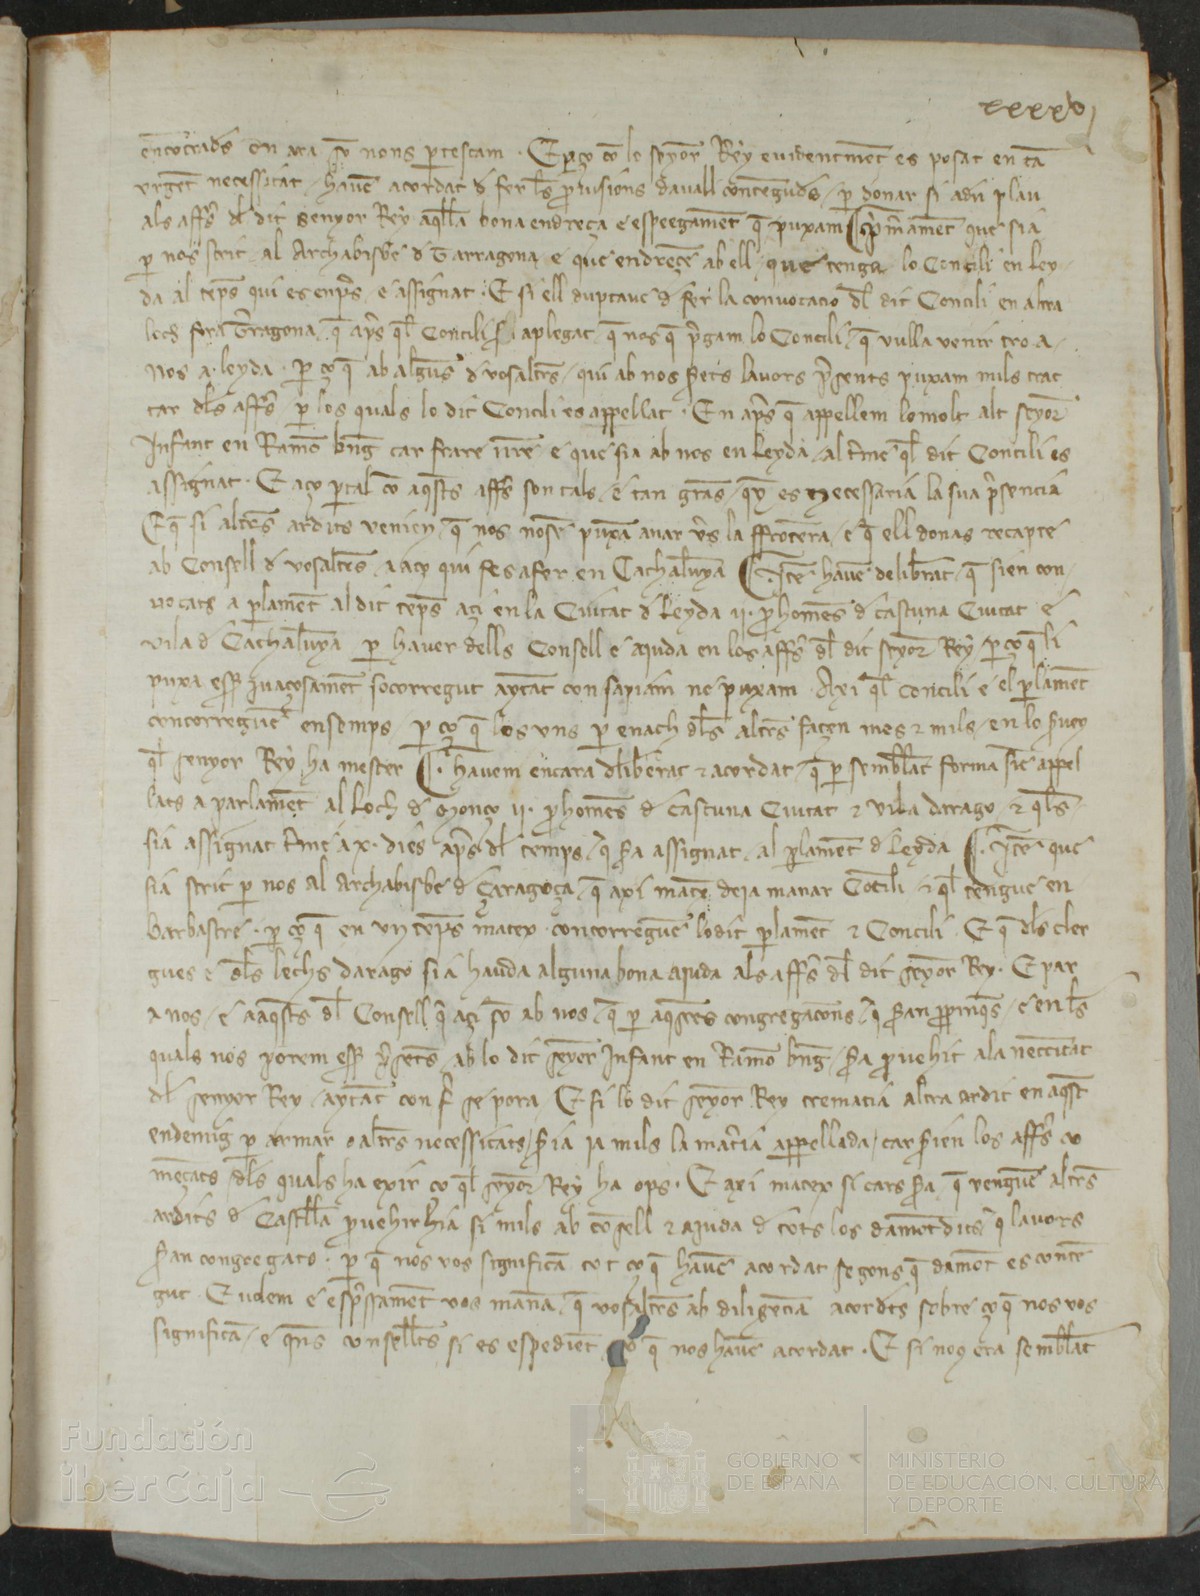 xxxxvj
en ara so nons partescam · E perço co lo senyor Rey evidentment es posat en ta
urgent necessitat / havem acordat d fer les provisions davall contengudes / per donar si a deu plau
als affers del dit Senyor Rey aqlla bona endreça e espeegament q puxam Primament que sia
p nos scrit al Archabisbe d Tarragona e que endreçe ab ell que tenga lo Concili en Ley
da al temps qui es empres e assignat · E si ell duptave d fer la convocacio del dit Concili en altra
loch fora Tarragona q apres ql Concili si aplegat q nos q pregam lo Concili q vulla venir tro a
nos a leyda · per ço q ab alguns d vosaltres / qui ab nos serets lavors presents puxam mils trac
tar dels affers per los quals lo dit Concili es appellat · En apres q appellem lo molt alt senyor
Infant en Ramon bng car frare nre e que sia ab nos en Leyda / al terme ql dit Concili es
assignat · E aço per tal co aqsts affers son tals e tan grans / es necessaria la sua presencia
E q si altres ardits venien q nos puxam anar vers la frontera e q ell donas recapte
ab Consell d vosaltres a aço qui fes a fer en Cathalunya Item havem deliberat q sien con
vocats a parlament al dit temps açi en la Ciutat d Leyda ij prohomens d cascuna Ciutat e
vila d Cathalunya per haver dells Consell e ajuda en los affers del dit senyor Rey per ço q li
puxa esser ivaçosament socorregut aytant con sapiam ne puxam Axi ql Concili e el parlament
concorreguen ensemps per ço q los uns per enach dels altres façen mes e mils en lo servey
ql senyor Rey ha mester havem encara deliberat e acordat q per semblant forma sien appel
lats a parlament al Loch d Monço ij prohomens d cascuna Ciutat e vila darago e qls
sia assignat terme a x dies apres del temps q sera assignat al parlament d Leyda Item que
sia scrit p nos al Archabisbe d Çaragoça q axi matex deja manar Concili e ql tengue en
barbastre · per ço q en un temps matex concorreguen lo dit parlament e Concili · E q dels cler
gues e dels lechs darago sia hauda alguna bona ajuda als affers del dit senyor Rey · E par
a nos e a aqsts del Consell q açi so ab nos q per aqstes congregacions q seran propinqs e en les
quals nos porem esser presents ab lo dit senyor Infant en Ramon bng sera provehit a la necessitat
del senyor Rey aytant con fer se pora · E si lo dit senyor Rey trematia altra ardit en aqst
endemig p armar o altres necessitats / seria ja mils la materia appellada / car serien los affers co
mençats dels quals ha exir ço ql senyor Rey ha ops · E axi matex si cars sera q venguen altres
ardits d Castella provehir hia si mils ab consell e ajuda d tots los damontdits q lavors
seran congregats · per q nos vos significam tot ço q havem acordat segons q damont es conten
gut · E volem e espressament vos manam q vosaltres ab diligencia acordets sobre ço q nos vos
significam e qns consellets si es espedient ço q nos havem acordat · E si noy era semblat
Fundación
iberCaja
GOBIERNO
DE ESPAÑA
MINISTERIO
DE EDUCACIÓN, CULTURA
Y DEPORTE